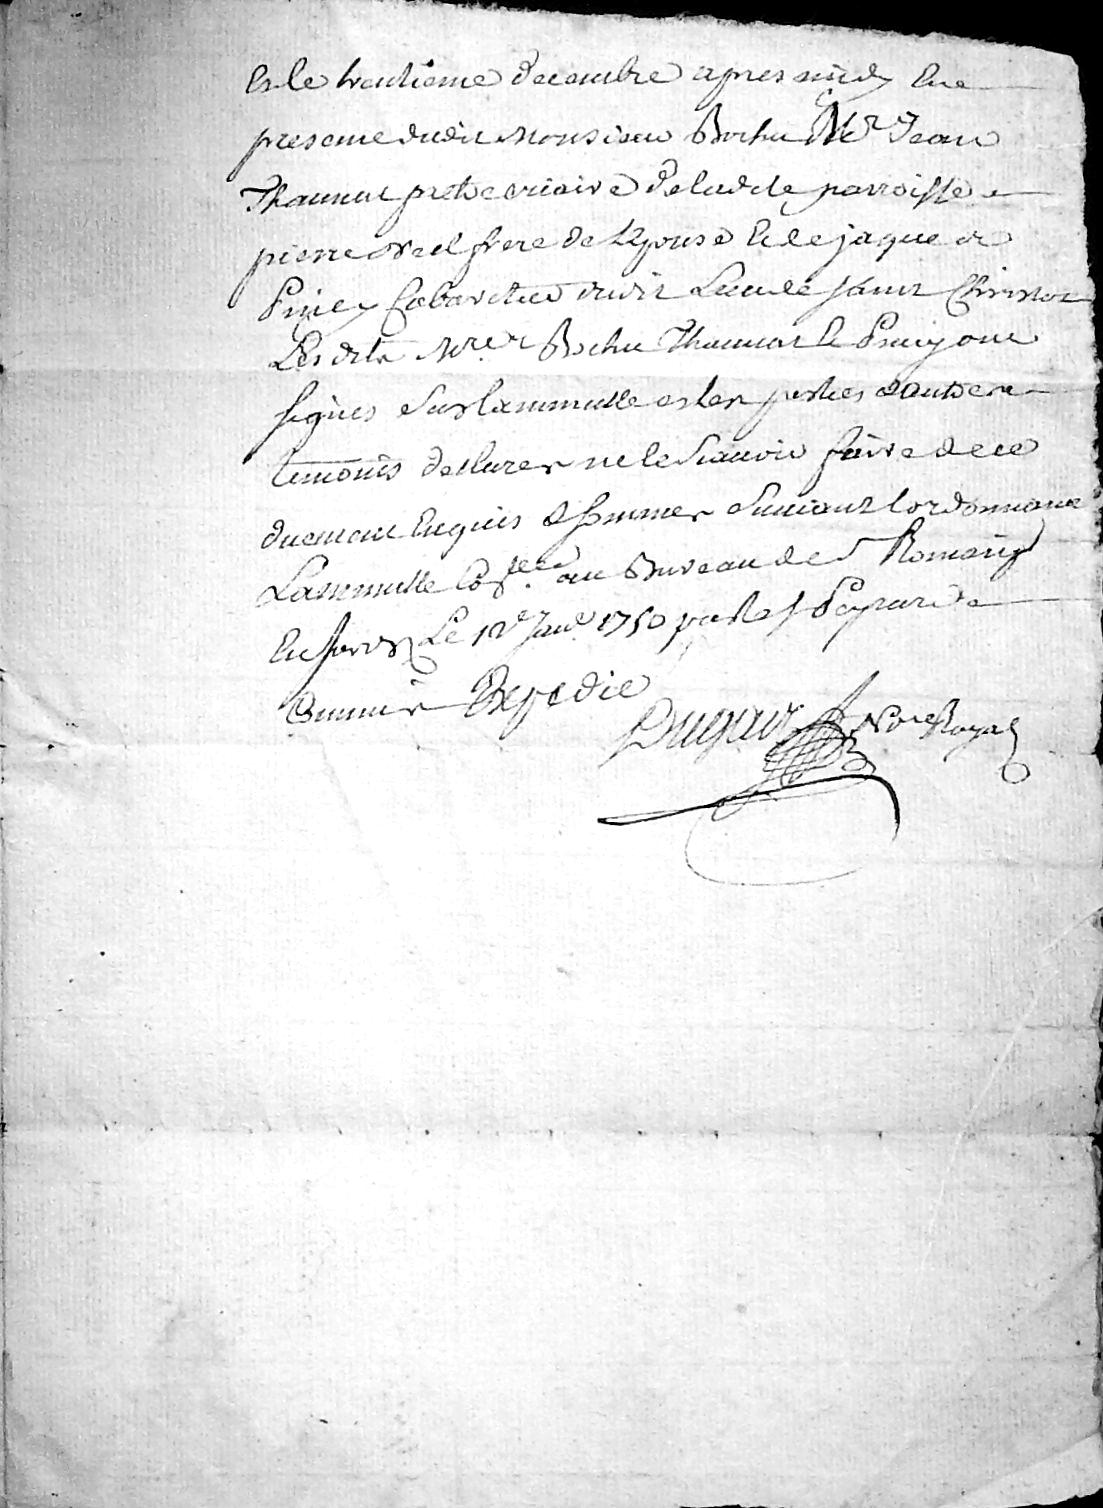 Et le trentieme decembre apres midy En
presence dudit Monsieur Bochu Mr Jean
Thaumat pretre vicaire de ladite parroisse
pierre frere de Lepouse Et de jaque
Cabaretier dudit Lieu de saint Christot
Lesdits Mrs Bochu Thaumat Et ont
signés sur la minutte et les parties & autres
temoins declarer ne le scavoir faire de ce
duement Enquis & sommer suivant lordonnance
La minutte au Bureau de st Romain
En Le 12e Janr 1750 par Peyrard
Commis Expedie
Duguet Nore Royal